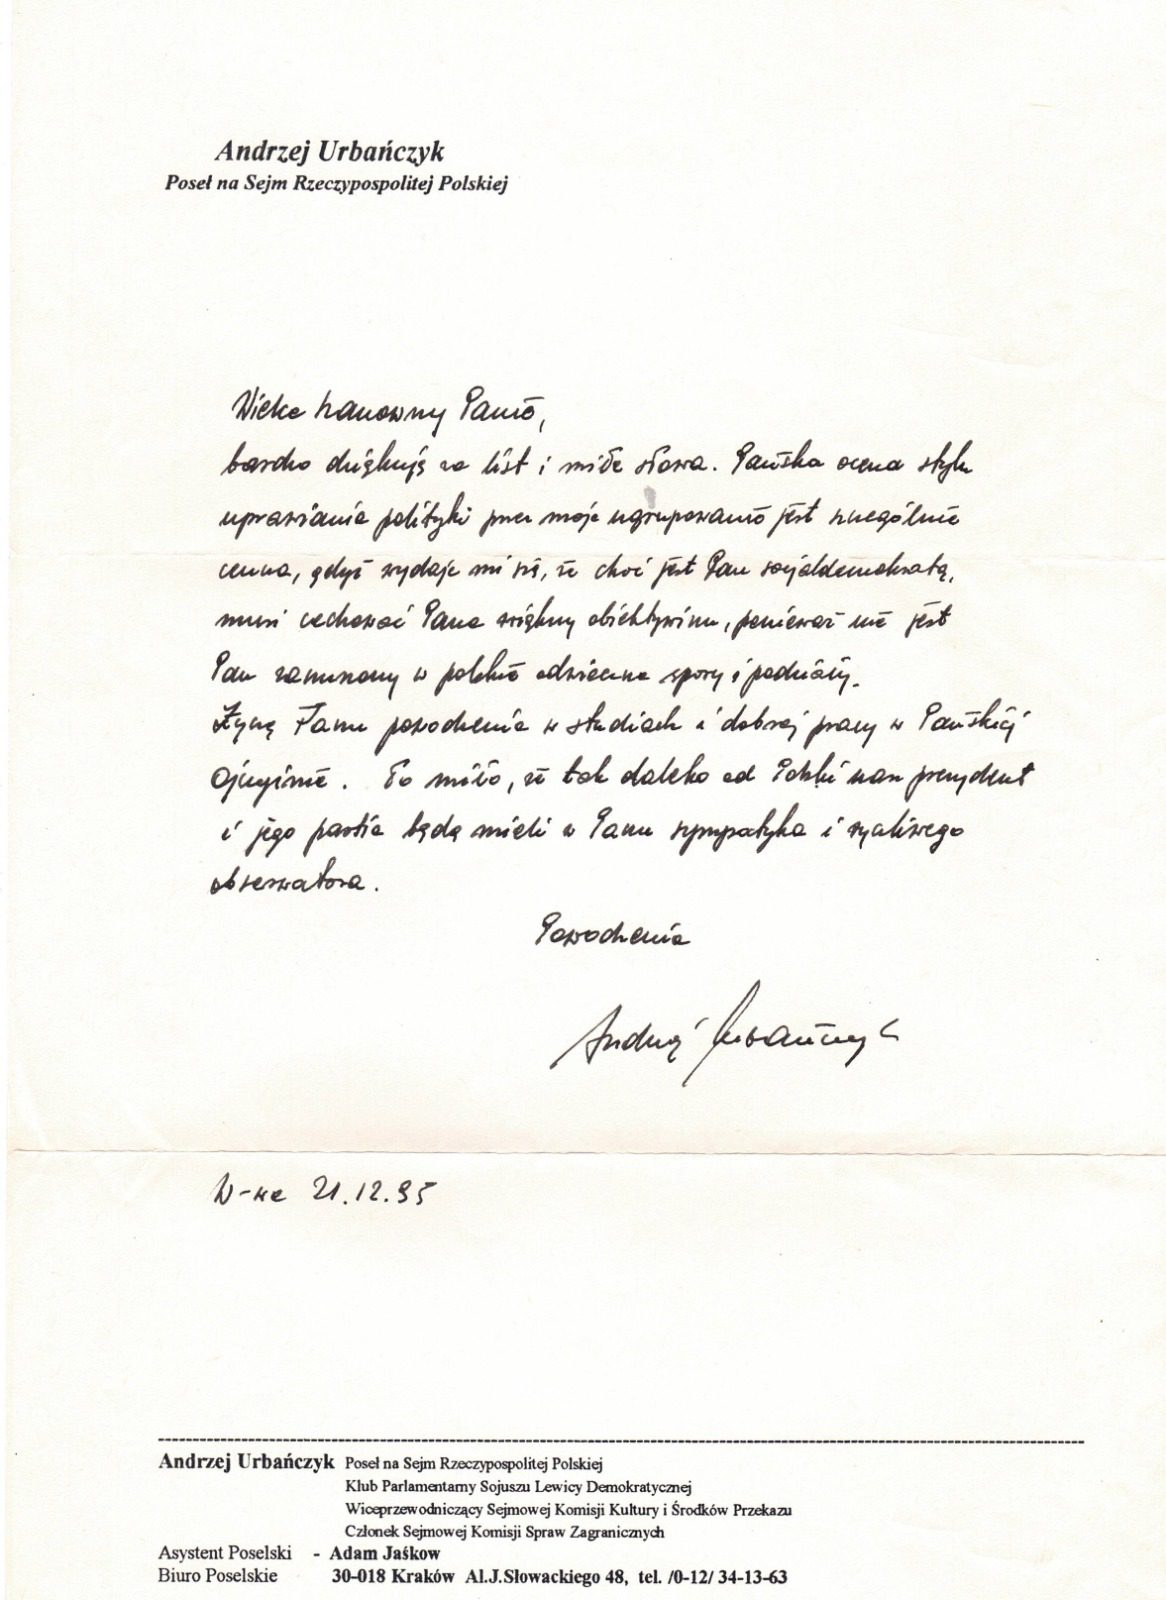 Andrzej Urbańczyk
Poseł na Sejm Rzeczypospolitej Polskiej
Wielce szanowny Panie,
bardzo dziękuję za list i miłe słowa. Pańska ocena stylu
uprawiania polityki przez moje ugrupowanie jest szczególnie
cenna, gdyż wydaje mi się, że choć jest Pan socjaldemokratą,
musi cechować Pana większy obiektywizm, ponieważ nie jest
Pan zanurzony w polskie odwieczne spory i podziały.
Życzę Panu powodzenia w studiach i dobrej pracy w Pańskiej
Ojczyźnie. To miło, że tak daleko od Polski nasz prezydent
i jego partia będą mieli w Panu sympatyka i życzliwego
obserwatora.
Powodzenia
Andrzej Urbańczyk
W-wa 21.12.95
Andrzej Urbańczyk Poseł na Sejm Rzeczypospolitej Polskiej
Klub Parlamentarny Sojuszu Lewicy Demokratycznej
Wiceprzewodniczący Sejmowej Komisji Kultury i Środków Przekazu
Członek Sejmowej Komisji Spraw Zagranicznych
Asystent Poselski - Adam Jaśkow
Biuro Poselskie 30-018 Kraków Al.J.Słowackiego 48, tel. /0-12/ 34-13-63